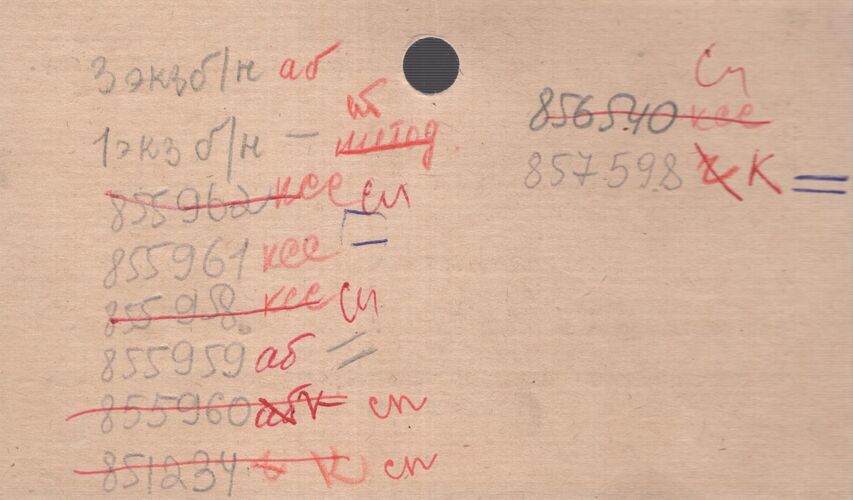 3 экз б/н аб
1 экз б/н — аб метод
855962 ксе сп
855961 ксе
855958 ксе сп
855959 аб
855960 аб К сп
851234 К сп
сп
856540 ксе
857598 К